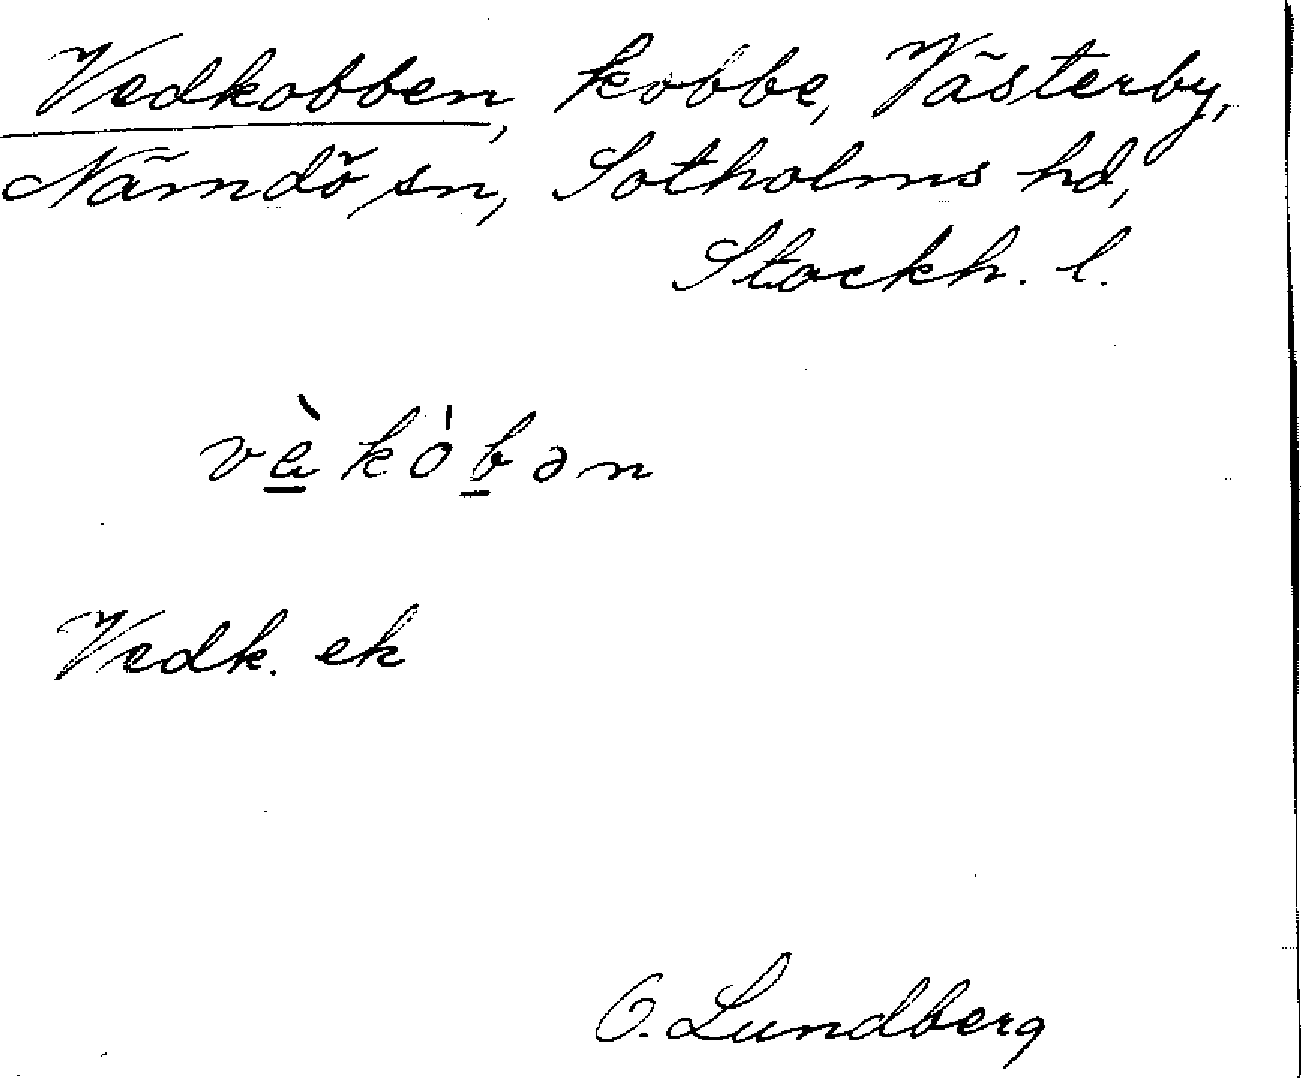 Vedkobben, kobbe, Västerby,
Nämdö sn, Sotholms hd,
Stockh. l.
vè̠kòb̠ən
Vedk. ek
O. Lundberg